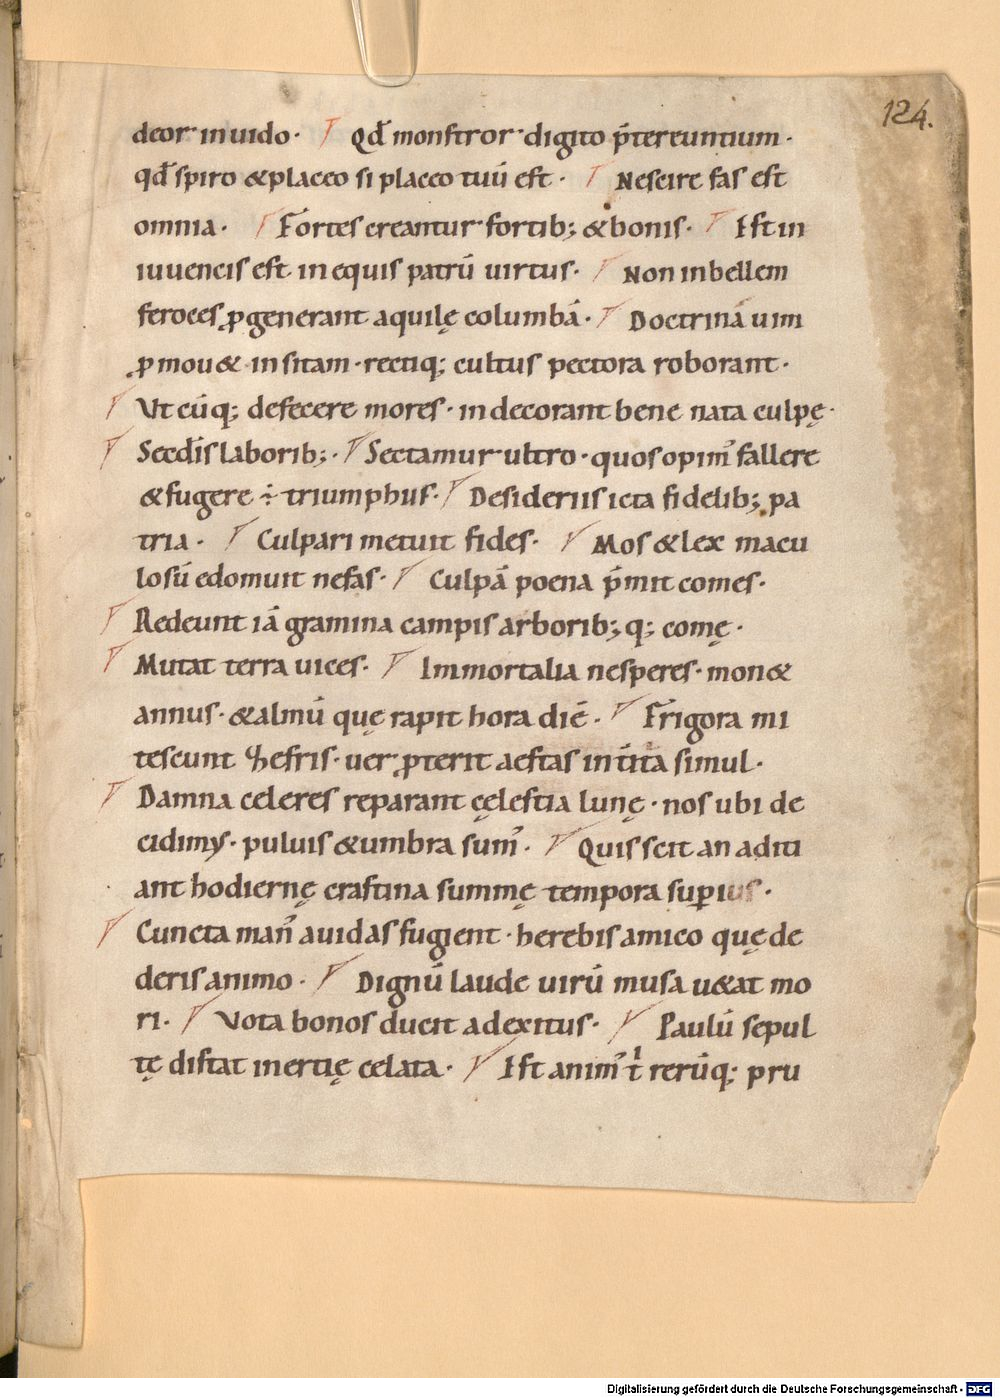 124.
deor inuido· Qđ monstror digito p̄tereuntium·
qđ spiro &placeo si placeo tuū est· Nescire fas est
omnia· Fortes creantur fortib; &bonis· Est in
iuuencis est in equis patrū uirtus· Non inbellem
feroces ꝓgenerant aquilę columbā· Doctrinā uim
ꝓmou& insitam· rectiq; cultus pectora roborant·
Vt cūq; defecere mores· indecorant bene nata culpę·
Secđis laborib;· Sectamur ultro· quos opim᾽ fallere
&fugere ÷ triumphus· Desideriis icta fidelib; pa
tria· Culpari metuit fides· Mos &lex macu
losū edomuit nefas· Culpā poena p̄mit comes·
Redeunt iā gramina campis arborib;q; comę·
Mutat terra uices· Immortalia ne speres· mon&
annus· &almū quę rapit hora diē· Frigora mi
tescunt zhefris· uer ꝓterit aestas int̄ita simul·
Damna celeres reparant cęlestia lunę· nos ubi de
cidimꝰ· puluis &umbra sum᾽· Quis scit an adici
ant hodiernę crastina summę tempora suꝑius·
Cuncta man᾽ auidas fugient· heredis amico quę de
deris animo· Dignū laude uirū musa u&at mo
ri· Vota bonos ducit ad exitus· Paulū sepul
tę distat inertię celata· Est anim᾽ t̄ rerūq; pru
Digitalisierung gefördert durch die Deutsche Forschungsgemeinschaft - DFG